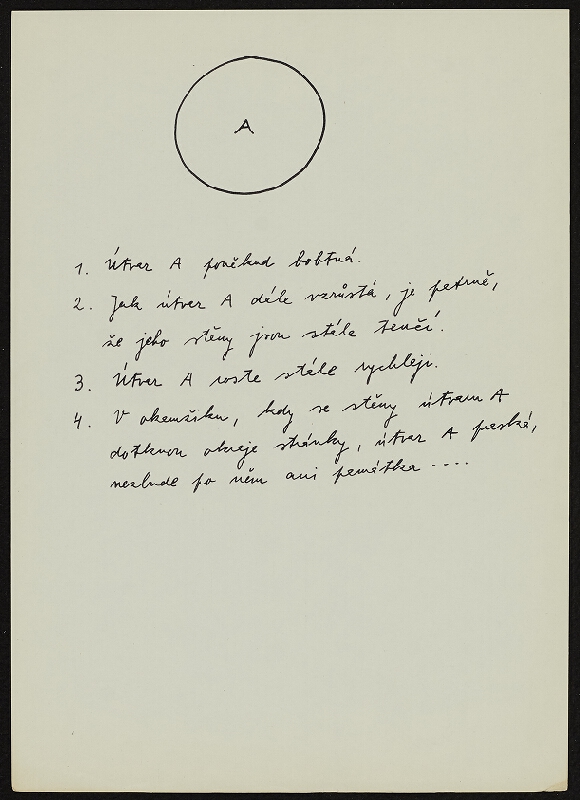 A
1. Útvar A poněkud bobtná.
2. Jak útvar A dále vzrůstá, je patrné,
že jeho stěny jsou stále tenčí.
3. Útvar A roste stále rychleji.
4. V okamžiku, kdy se stěny útvaru A
dotknou okraje stránky, útvar A praská,
nezbude po něm ani památka ....